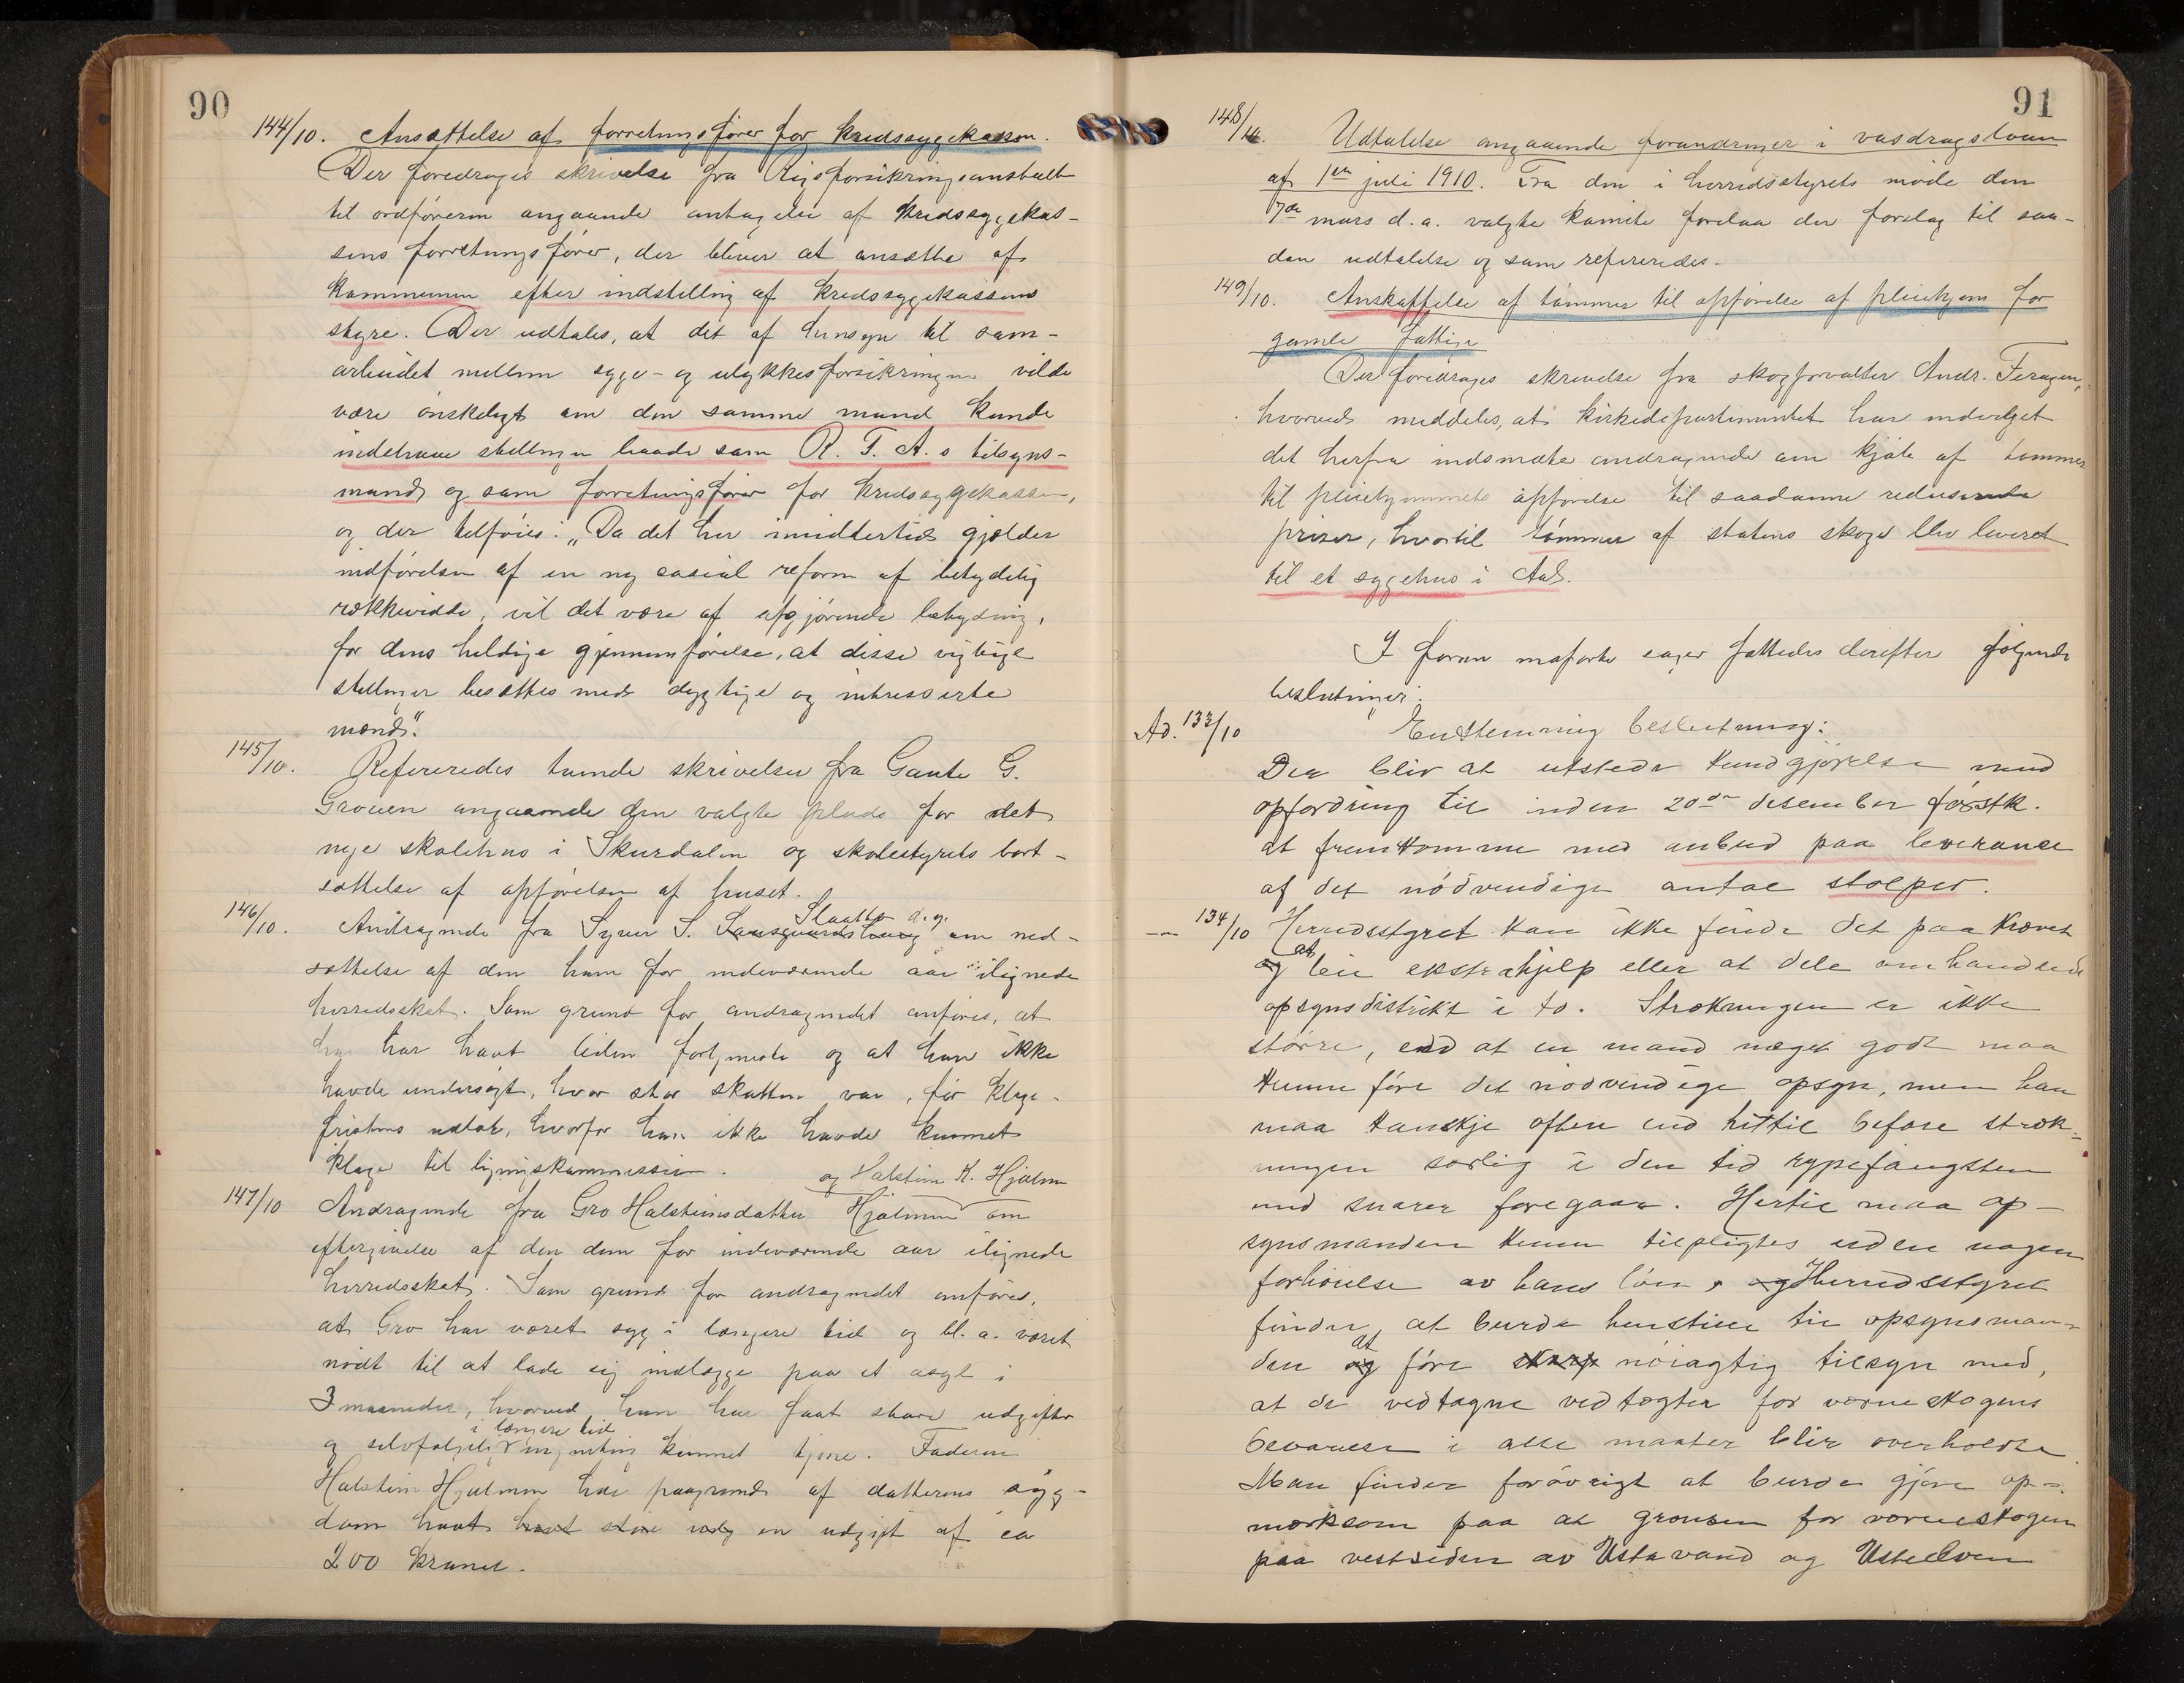 90
144/10. Ansættelse af forretningsfører for kredssygekassen.
Der foredroges skrivelse fra Rigsforsikringsanstalt
til ordføreren angaaende antagelse af kredssygekas-
sens forretningsfører, der bliver at ansætte af
kommunen efter indstilling af kredssygekassens
styre. Der udtales, at det af hensyn til sam-
arbeidet mellem syge- og ulykkesforsikringen vilde
være ønskeligt om den samme mand kunde
indehave stillingen baade som R. F. A.s tilsyns-
mand og som forretningsfører for kredssygekassen,
og der tilføies: „Da det her imidlertid gjælder
indførelsen af en ny sosial reform af betydelig
rækkevidde, vil det være af afgjørende betydning,
for dens heldige gjennemførelse, at disse vigtige
stillinger besættes med dygtige og intresserte
mænd."
145/10. Refereredes tvende skrivelser fra Gaute G.
Grouen angaaende den valgte plads for det
nye skolehus i Skurdalen og skolestyrets bort-
sættelse af opførelsen af huset.
Slaatto d.y.
146/10. Andragende fra Syver S. om ned-
sættelse af den ham for indeværende aar ilignede
herredsskat. Som grund for andragendet anføres, at
han har havt liden fortjeneste og at han ikke
havde undersøgt, hvor stor skatten var, før klage-
fristens udløb, hvorfor han ikke havde kunnet
klage til ligningskommissionen.
og Halstein K. Hjølmen
147/10 Andragende fra Gro Halsteinsdatter Hjølmen om
eftergivelse af den dem for indeværende aar ilignede
herredsskat. Som grund for andragendet anføres,
at Gro har været syg i længere tid og bl. a. været
nødt til at lade sig indlægge paa et asyl i
3 maaneder, hvorved hun har faat store udgifter
i længere tid
og selvfølgelig ingenting kunnet tjene. Faderen
Halstein Hjølmen har paagrund af datterens syg-
dom havt havt store en udgift af ca
200 kroner.
91
148/10. Udtalelse angaaende forandringer i vasdragsloven
af 1en juli 1910. Fra den i herredsstyrets møde den
7de mars d.a. valgte komite forelaa der forslag til saa-
dan udtalelse og som refereredes.
149/10. Anskaffelse af tømmer til opførelse af pleiehjem for
gamle fattige
Der foredroges skrivelse fra skogforvalter Andr. Feragen,
hvorved meddeles, at kirkedepartementet har indvilget
det herfra indsendte andragende om kjøb af tømmer
til pleiehjemmets opførelse til saadanne reduserede
priser, hvortil tømmer af statens skoge blev leveret
til et sygehus i Aal.
I foran anførte sager fattedes derefter følgende
beslutninger.
Ad. 133/10 Enstemmig beslutning:
Der bliv at utstede kundgjørelse med
opfordring til inden 20de desember førstk.
at fremkomme med anbud paa leverance
af det nødvendige antal stolper.
-"- 134/10 Herredsstyret kan ikke finde det paakrævet
at
og leie ekstrahjelp eller at dele omhandlede
opsynsdistrikt i to. Strækningen er ikke
større, end at en mand meget godt maa
kunne føre det nødvendige opsyn, men han
maa kanskje oftere end hittil befare stræk-
ningen særlig i den tid rypefangsten
med snarer foregaar. Hertil maa op-
synsmanden kunne tilpligtes uden nogen
forhøielse av hans løn, og Herredsstyret
finder at burde henstille til opsynsman-
at
den og føre skarp nøiagtig tilsyn med,
at de vedtagne vedtægter for verneskogens
bevarelse i alle maater blir overholdte
Man finder forøvrigt at burde gjøre op-
merksom paa at grænsen for verneskogen
paa vestsiden av Ustavand og Usteelven